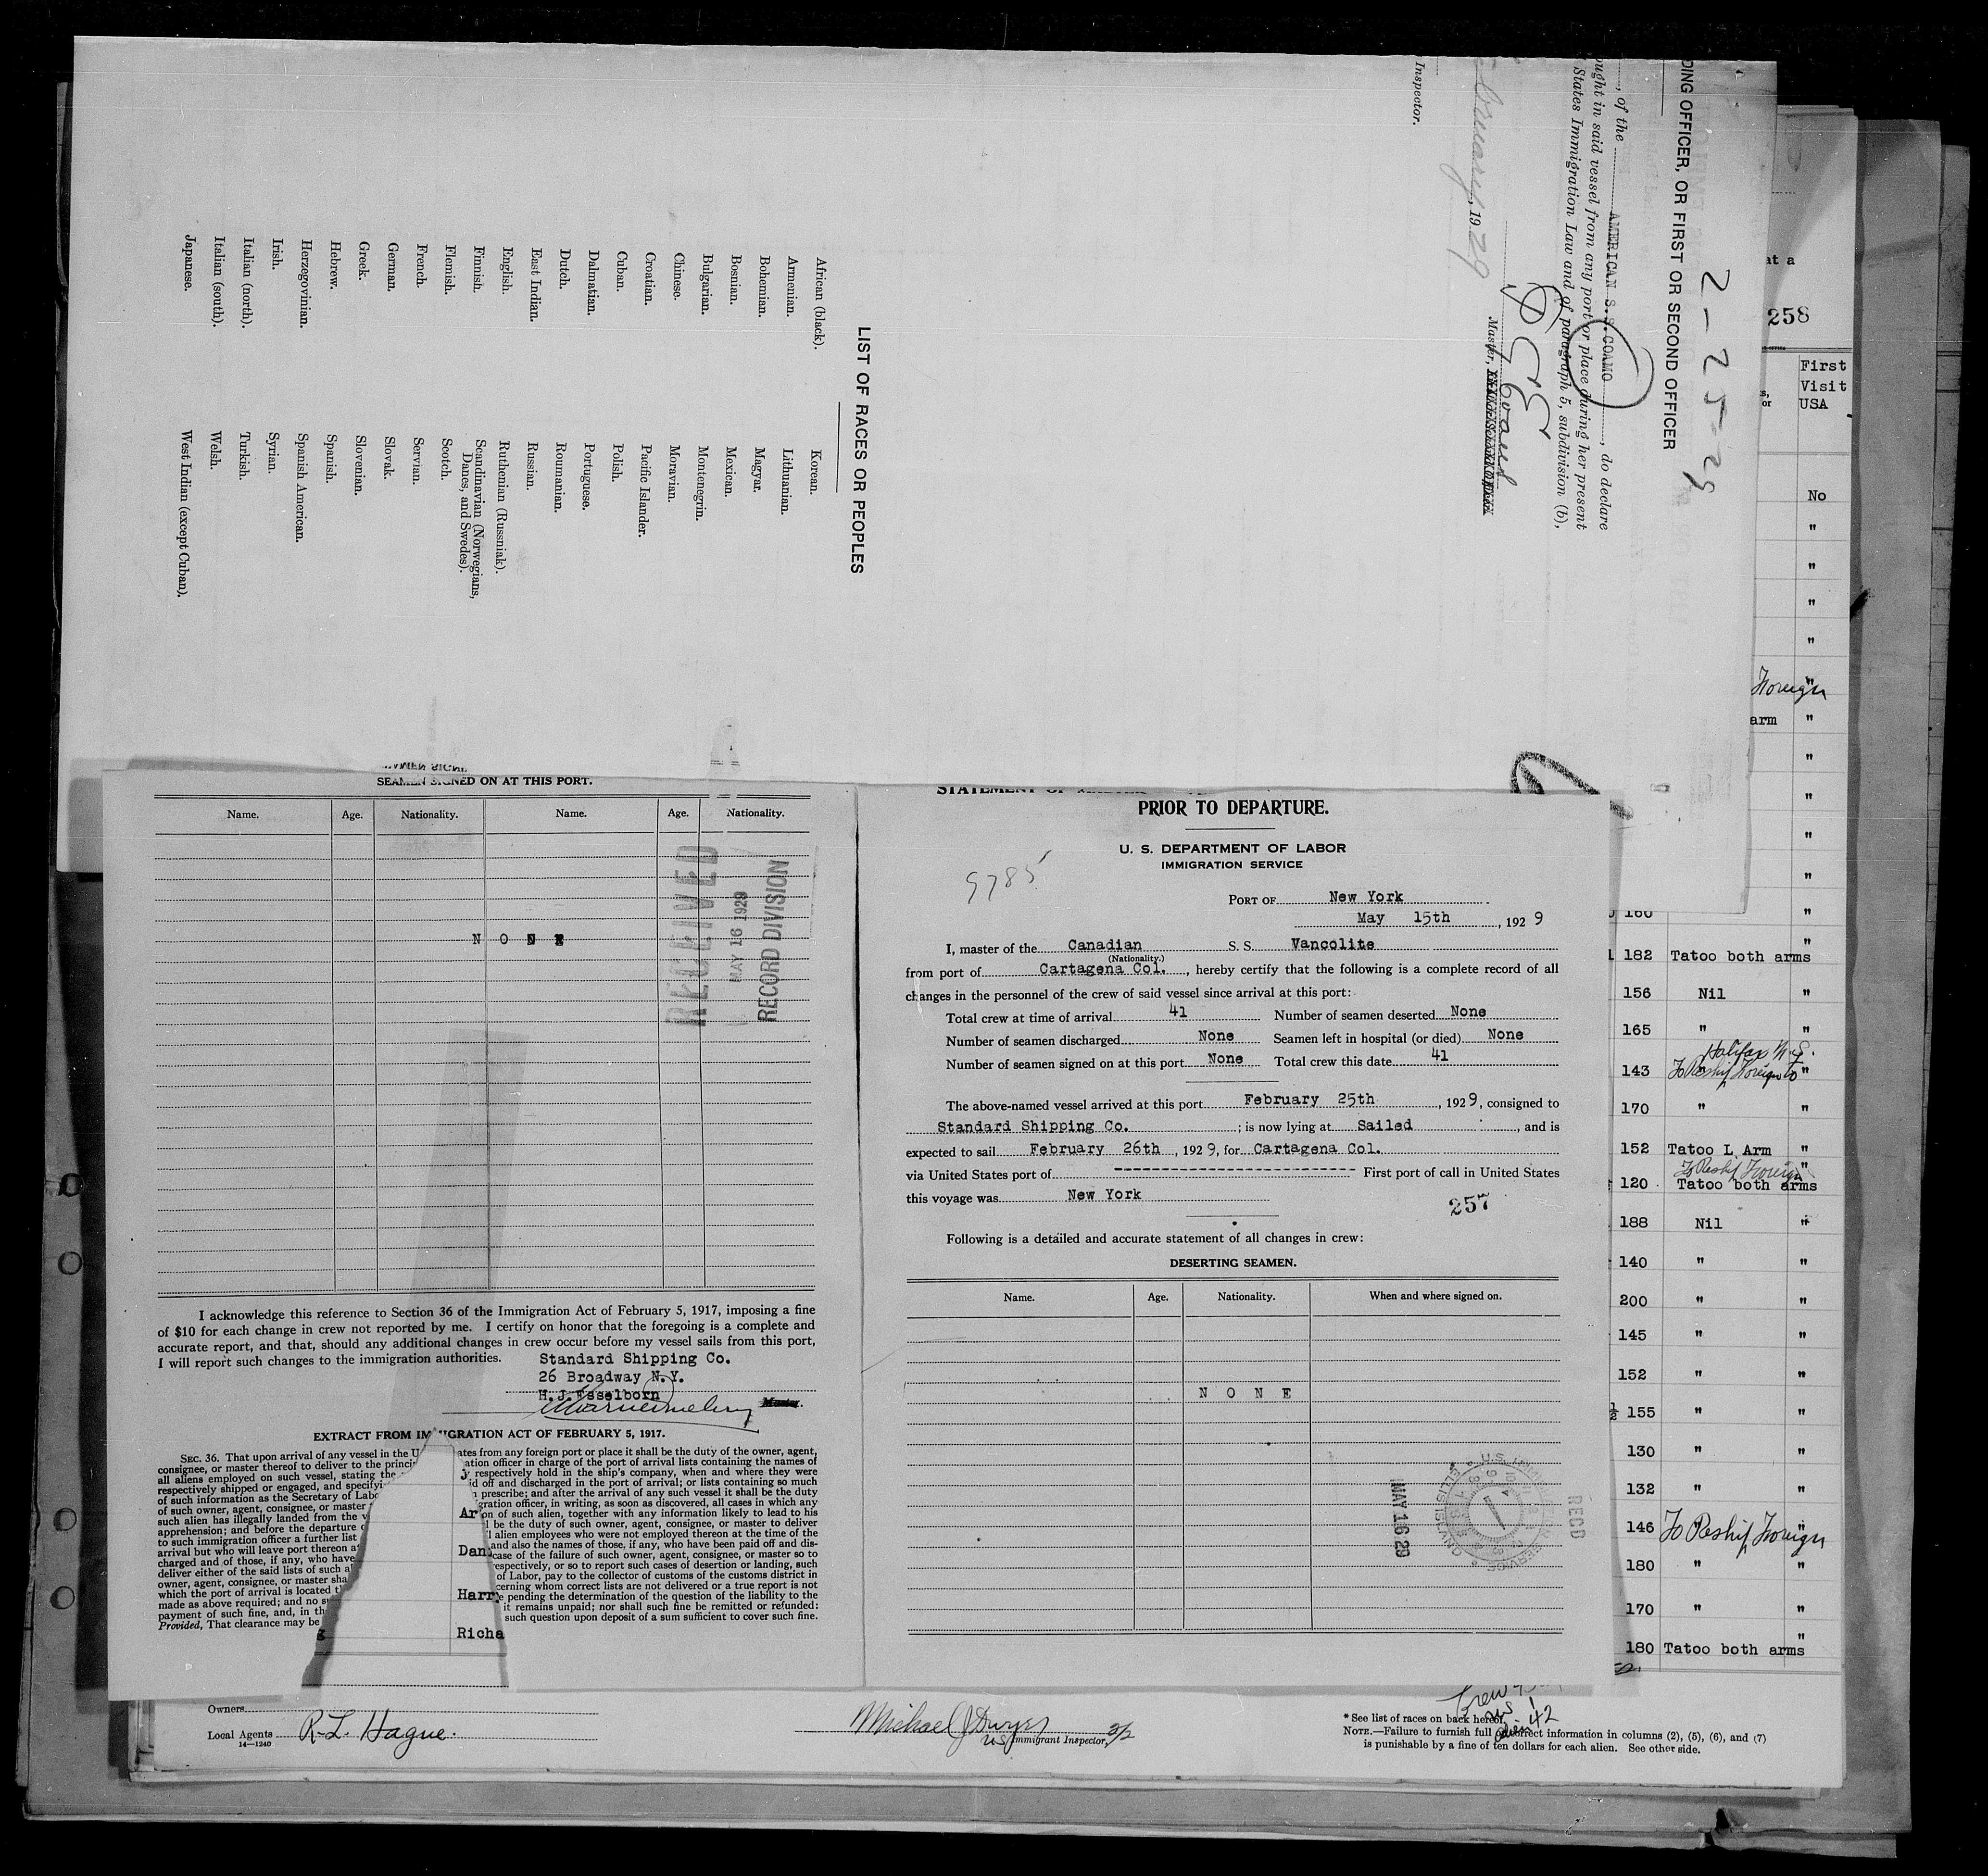 DING OFFICER, OR FIRST OR SECOND OFFICER
2-25-29
, of the AMERICAN S.S. COAMO, do declare
ought in said vessel from any port or place during her present
States Immigration Law and of paragraph 5, subdivision (b),
Master,
, 1929
Inspector.
LIST OF RACES OR PEOPLES
African (black).
Armenian.
Bohemian.
Bosnian.
Bulgarian.
Chinese.
Croatian.
Cuban.
Dalmatian.
Dutch.
East Indian.
English.
Finnish.
Flemish.
French.
German.
Greek.
Hebrew.
Herzegovinian.
Irish.
Italian (north).
Italian (south).
Japanese.
Korean.
Lithuanian.
Magyar.
Mexican.
Montenegrin.
Moravian.
Pacific Islander.
Polish.
Portuguese.
Roumanian.
Russian.
Ruthenian (Russniak).
Scandinavian (Norwegians,
Danes, and Swedes).
Scotch.
Servian.
Slovak.
Slovenian.
Spanish.
Spanish American.
Syrian.
Turkish.
Welsh.
West Indian (except Cuban).
SEAMEN SIGNED ON AT THIS PORT.
Name. Age. Nationality. Name. Age. Nationality.
N O N E
RECEIVED
MAY 16 1929
RECORD DIVISION
I acknowledge this reference to Section 36 of the Immigration Act of February 5, 1917, imposing a fine
of $10 for each change in crew not reported by me. I certify on honor that the foregoing is a complete and
accurate report, and that, should any additional changes in crew occur before my vessel sails from this port,
I will report such changes to the immigration authorities.
Standard Shipping Co.
26 Broadway N.Y.
H.J. Esselborn
Master.
EXTRACT FROM IMMIGRATION ACT OF FEBRUARY 5, 1917.
SEC. 36. That upon arrival of any vessel in the U ates from any foreign port or place it shall be the duty of the owner, agent,
consignee, or master thereof to deliver to the princi ation officer in charge of the port of arrival lists containing the names of
all aliens employed on such vessel, stating the y respectively hold in the ship's company, when and where they were
respectively shipped or engaged, and specifyi id off and discharged in the port of arrival; or lists containing so much
of such information as the Secretary of Labo prescribe; and after the arrival of any such vessel it shall be the duty
of such owner, agent, consignee, or master gration officer, in writing, as soon as discovered, all cases in which any
such alien has illegally landed from the v on of such alien, together with any information likely to lead to his
apprehension; and before the departure o l be the duty of such owner, agent, consignee, or master to deliver
to such immigration officer a further list l alien employees who were not employed thereon at the time of the
arrival but who will leave port thereon at and also the names of those, if any, who have been paid off and dis-
charged and of those, if any, who have case of the failure of such owner, agent, consignee, or master so to
deliver either of the said lists of such al respectively, or so to report such cases of desertion or landing, such
owner, agent, consignee, or master sha of Labor, pay to the collector of customs of the customs district in
which the port of arrival is located t cerning whom correct lists are not delivered or a true report is not
made as above required; and no su e pending the determination of the question of the liability to the
payment of such fine, and, in th it remains unpaid; nor shall such fine be remitted or refunded:
Provided, That clearance may be such question upon deposit of a sum sufficient to cover such fine.
Ar
Dan
Harr
Richa
PRIOR TO DEPARTURE.
U. S. DEPARTMENT OF LABOR
IMMIGRATION SERVICE
9785
PORT OF New York
May 15th, 1929
I, master of the Canadian S. S. Vancolite
(Nationality.)
from port of Cartagena Col., hereby certify that the following is a complete record of all
changes in the personnel of the crew of said vessel since arrival at this port:
Total crew at time of arrival 41 Number of seamen deserted None
Number of seamen discharged None Seamen left in hospital (or died) None
Number of seamen signed on at this port None Total crew this date 41
The above-named vessel arrived at this port February 25th, 1929, consigned to
Standard Shipping Co.; is now lying at Sailed, and is
expected to sail February 26th, 1929, for Cartagena Col.
via United States port of ---------- First port of call in United States
this voyage was New York
257
Following is a detailed and accurate statement of all changes in crew:
DESERTING SEAMEN.
Name. Age. Nationality. When and where signed on.
N O N E
MAY 16 29
REC'D
at a
258
First
Visit
USA
No
"
"
"
"
Foreign "
arm "
"
"
"
"
160 "
182 Tatoo both arms "
156 Nil "
165 " "
Halifax N.S.
143 To Reship Foreign to "
170 " "
152 Tatoo L Arm "
To Reship Foreign "
120 Tatoo both arms
188 Nil "
140 " "
200 " "
145 " "
152 " "
1/2 155 " "
130 " "
132 " "
146 To Reship Foreign "
180 " "
170 " "
180 Tatoo both arms "
Owners
Local Agents R-L. Hague.
14—1240
Michael J Dwyer
US Immigrant Inspector,
Crew
US 1
alien 42
* See list of races on back hereof.
NOTE.—Failure to furnish full or correct information in columns (2), (5), (6), and (7)
is punishable by a fine of ten dollars for each alien. See other side.